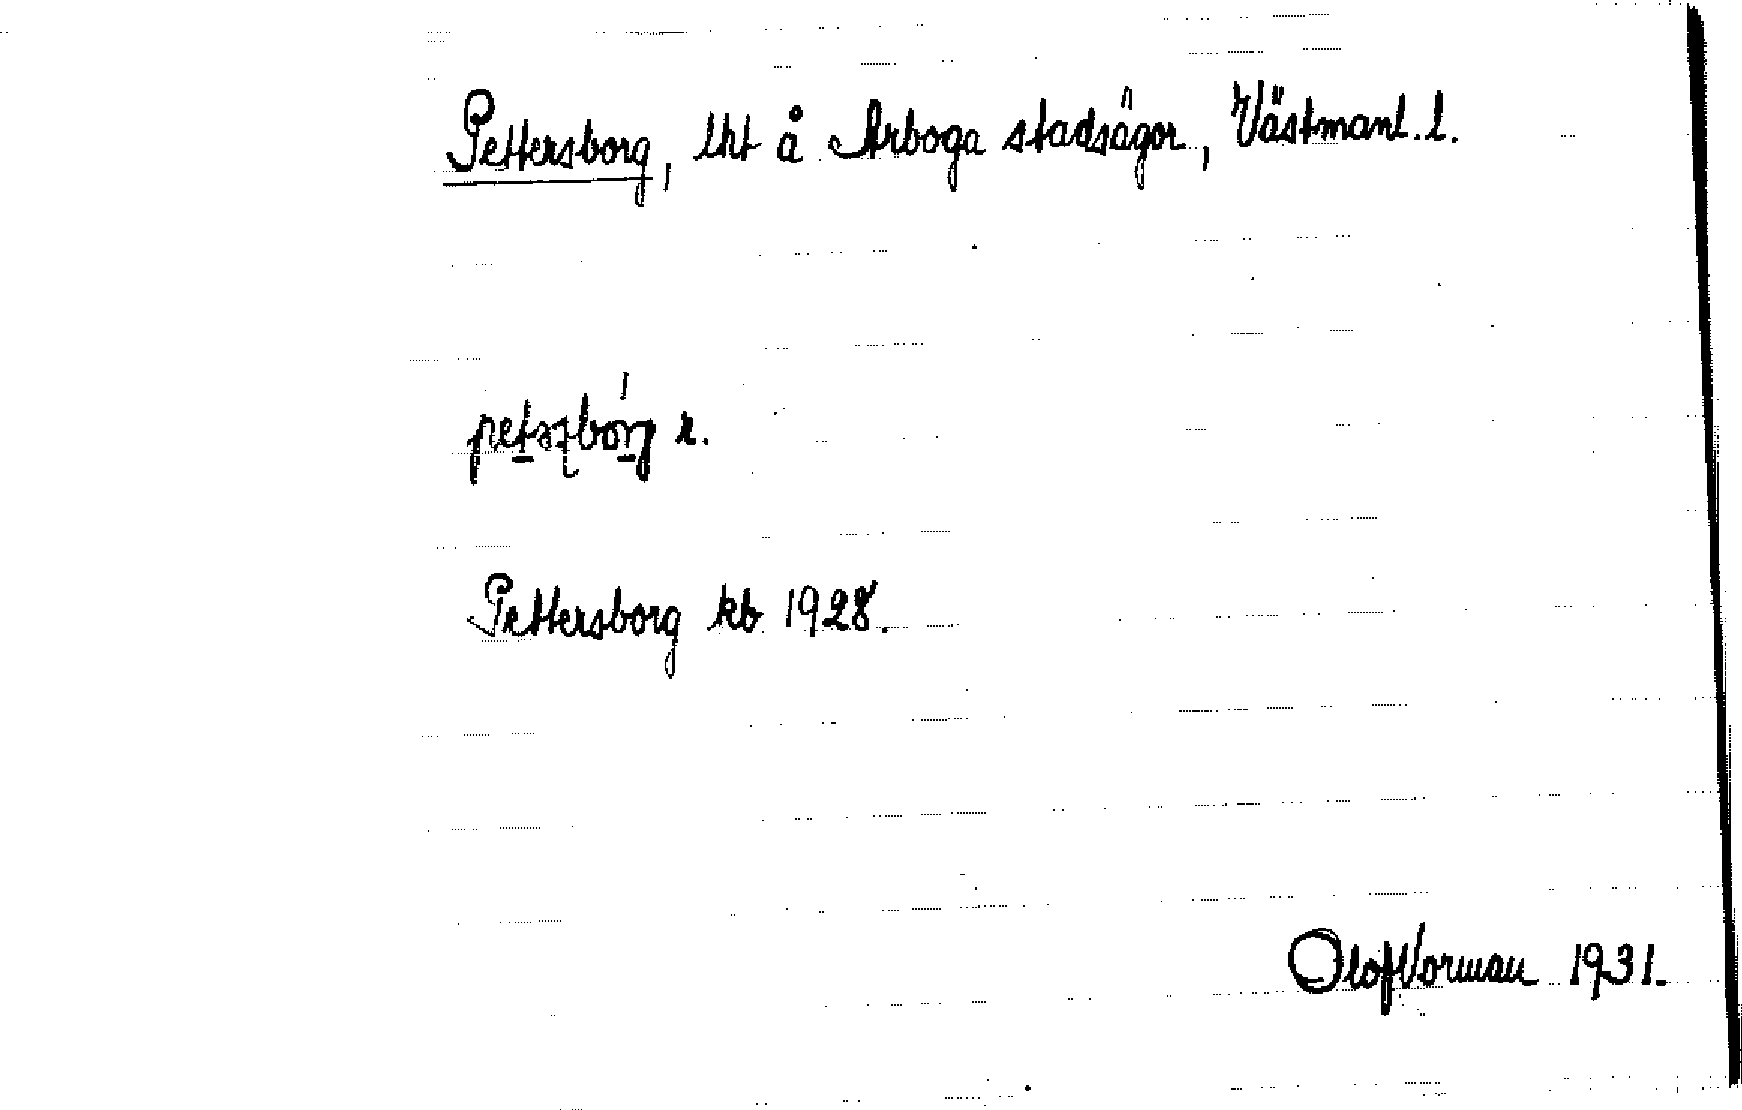 Pettersborg, lht å Arboga stadsägor, Västmanl. l.
r.
Pettersborg kb 1928.
Olof Vorman 1931.